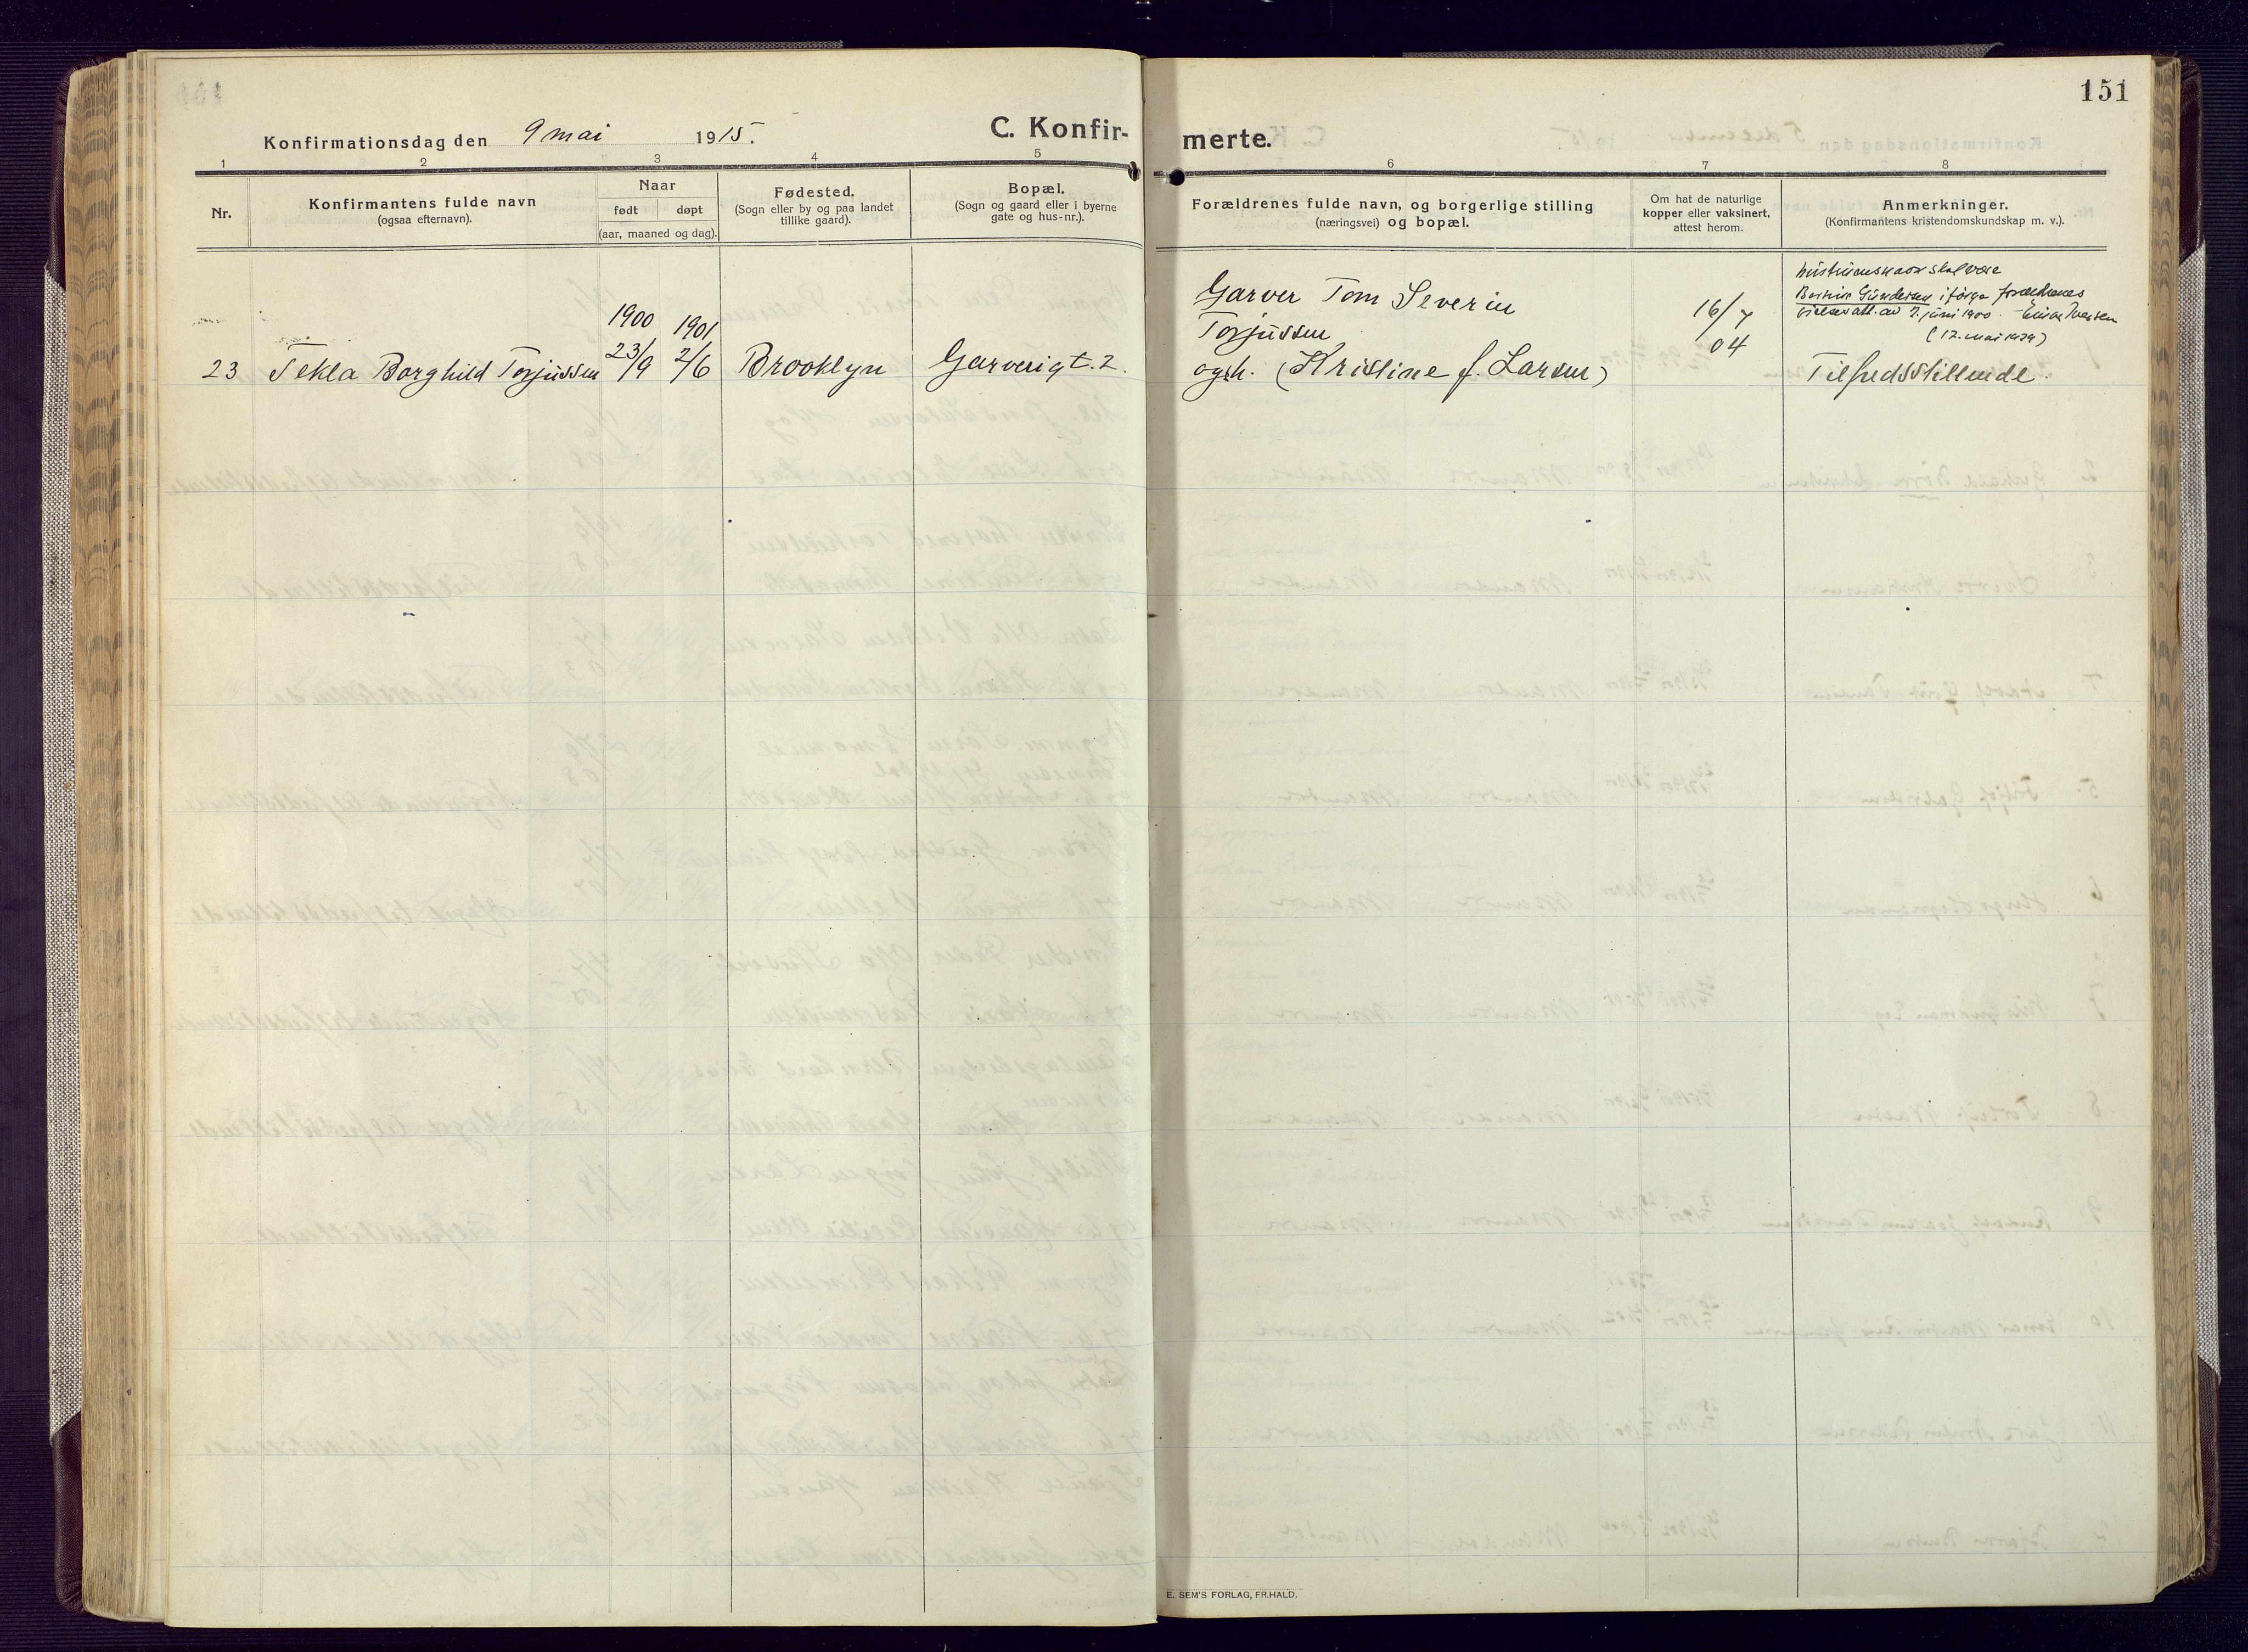 151
Konfirmationsdag den 9 mai 1915.
C. Konfir-
merte.
1 2 3 4 5 6 7 8
Nr.
Konfirmantens fulde navn
(ogsaa efternavn).
Naar
født døpt
(aar, maaned og dag).
Fødested.
(Sogn eller by og paa landet
tillike gaard).
Bopæl.
(Sogn og gaard eller i byerne
gate og hus-nr.).
Forældrenes fulde navn, og borgerlige stilling
(næringsvei) og bopæl.
Om hat de naturlige
kopper eller vaksinert,
attest herom.
Anmerkninger.
(Konfirmantens kristendomskundskap m. v.).
23 Tekla Borghild Torjussen
1900
23/9
1901
2/6
Brooklyn
Garverigt. 2.
Garver Tom Severin
Torjussen
og h. (Kristine f. Larsen)
16/7
04
skal være
Gundersen ifølge forældrenes
att. av 7. juni 1900.
Tilfredsstillende.
E. SEM'S FORLAG, FR.HALD.